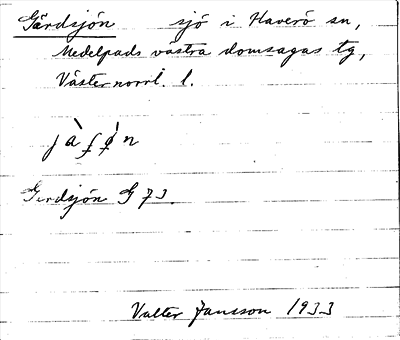 Gärdsjön sjö i Haverö sn,
Medelpads västra domsagas tg,
Västernorrl. l.
Gerdsjön G 73.
Valter Jansson 1933